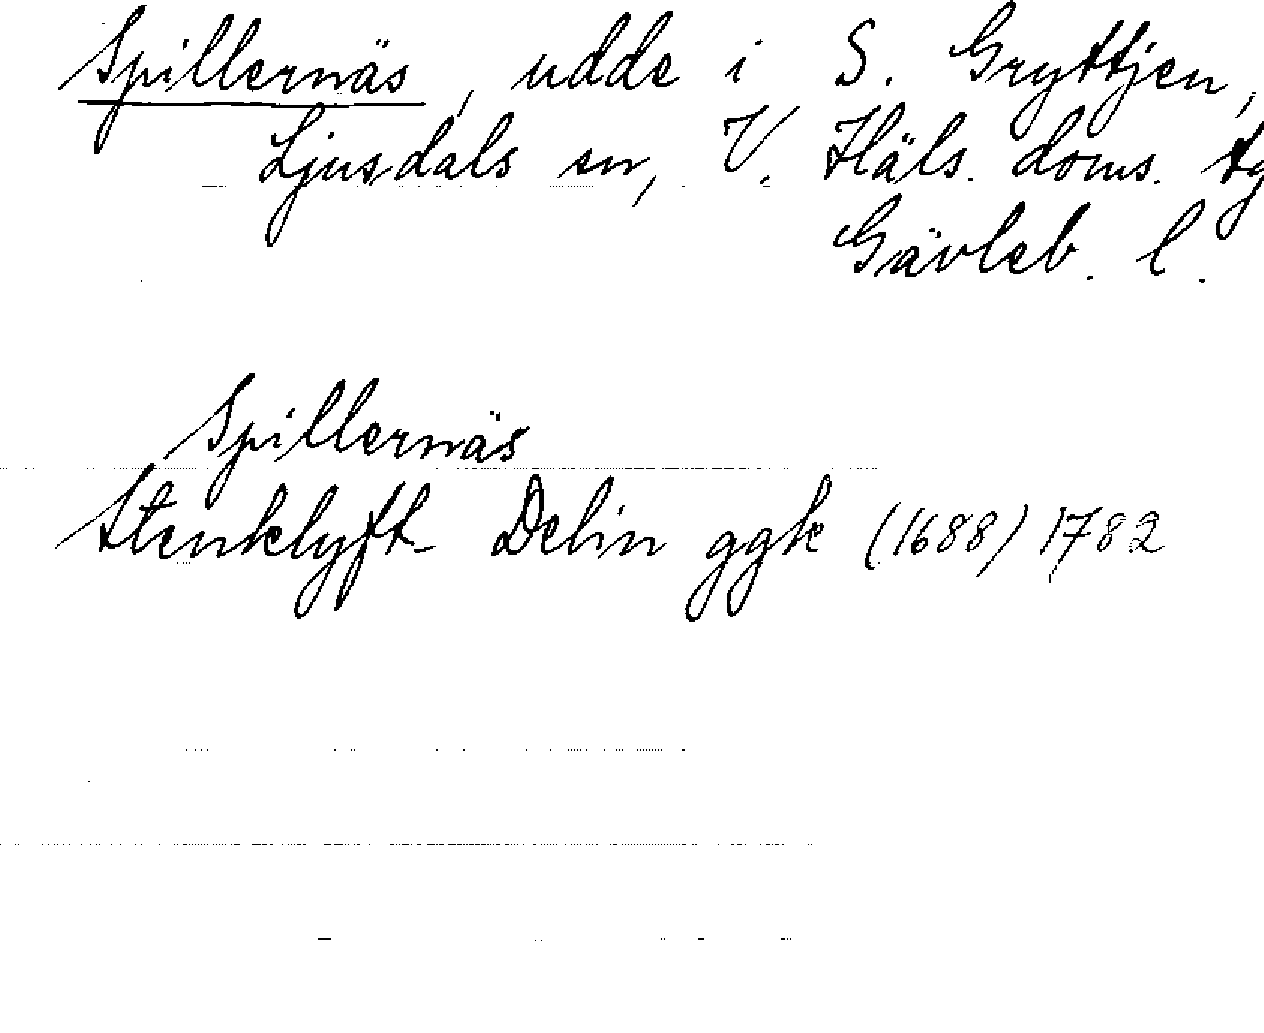 Spillernäs, udde i S. Gryttjen,
Ljusdals sn, V. Häls. doms. tg
Gävleb. l.
Spillernäs
Stenklyft Delin ggk (1688) 1782